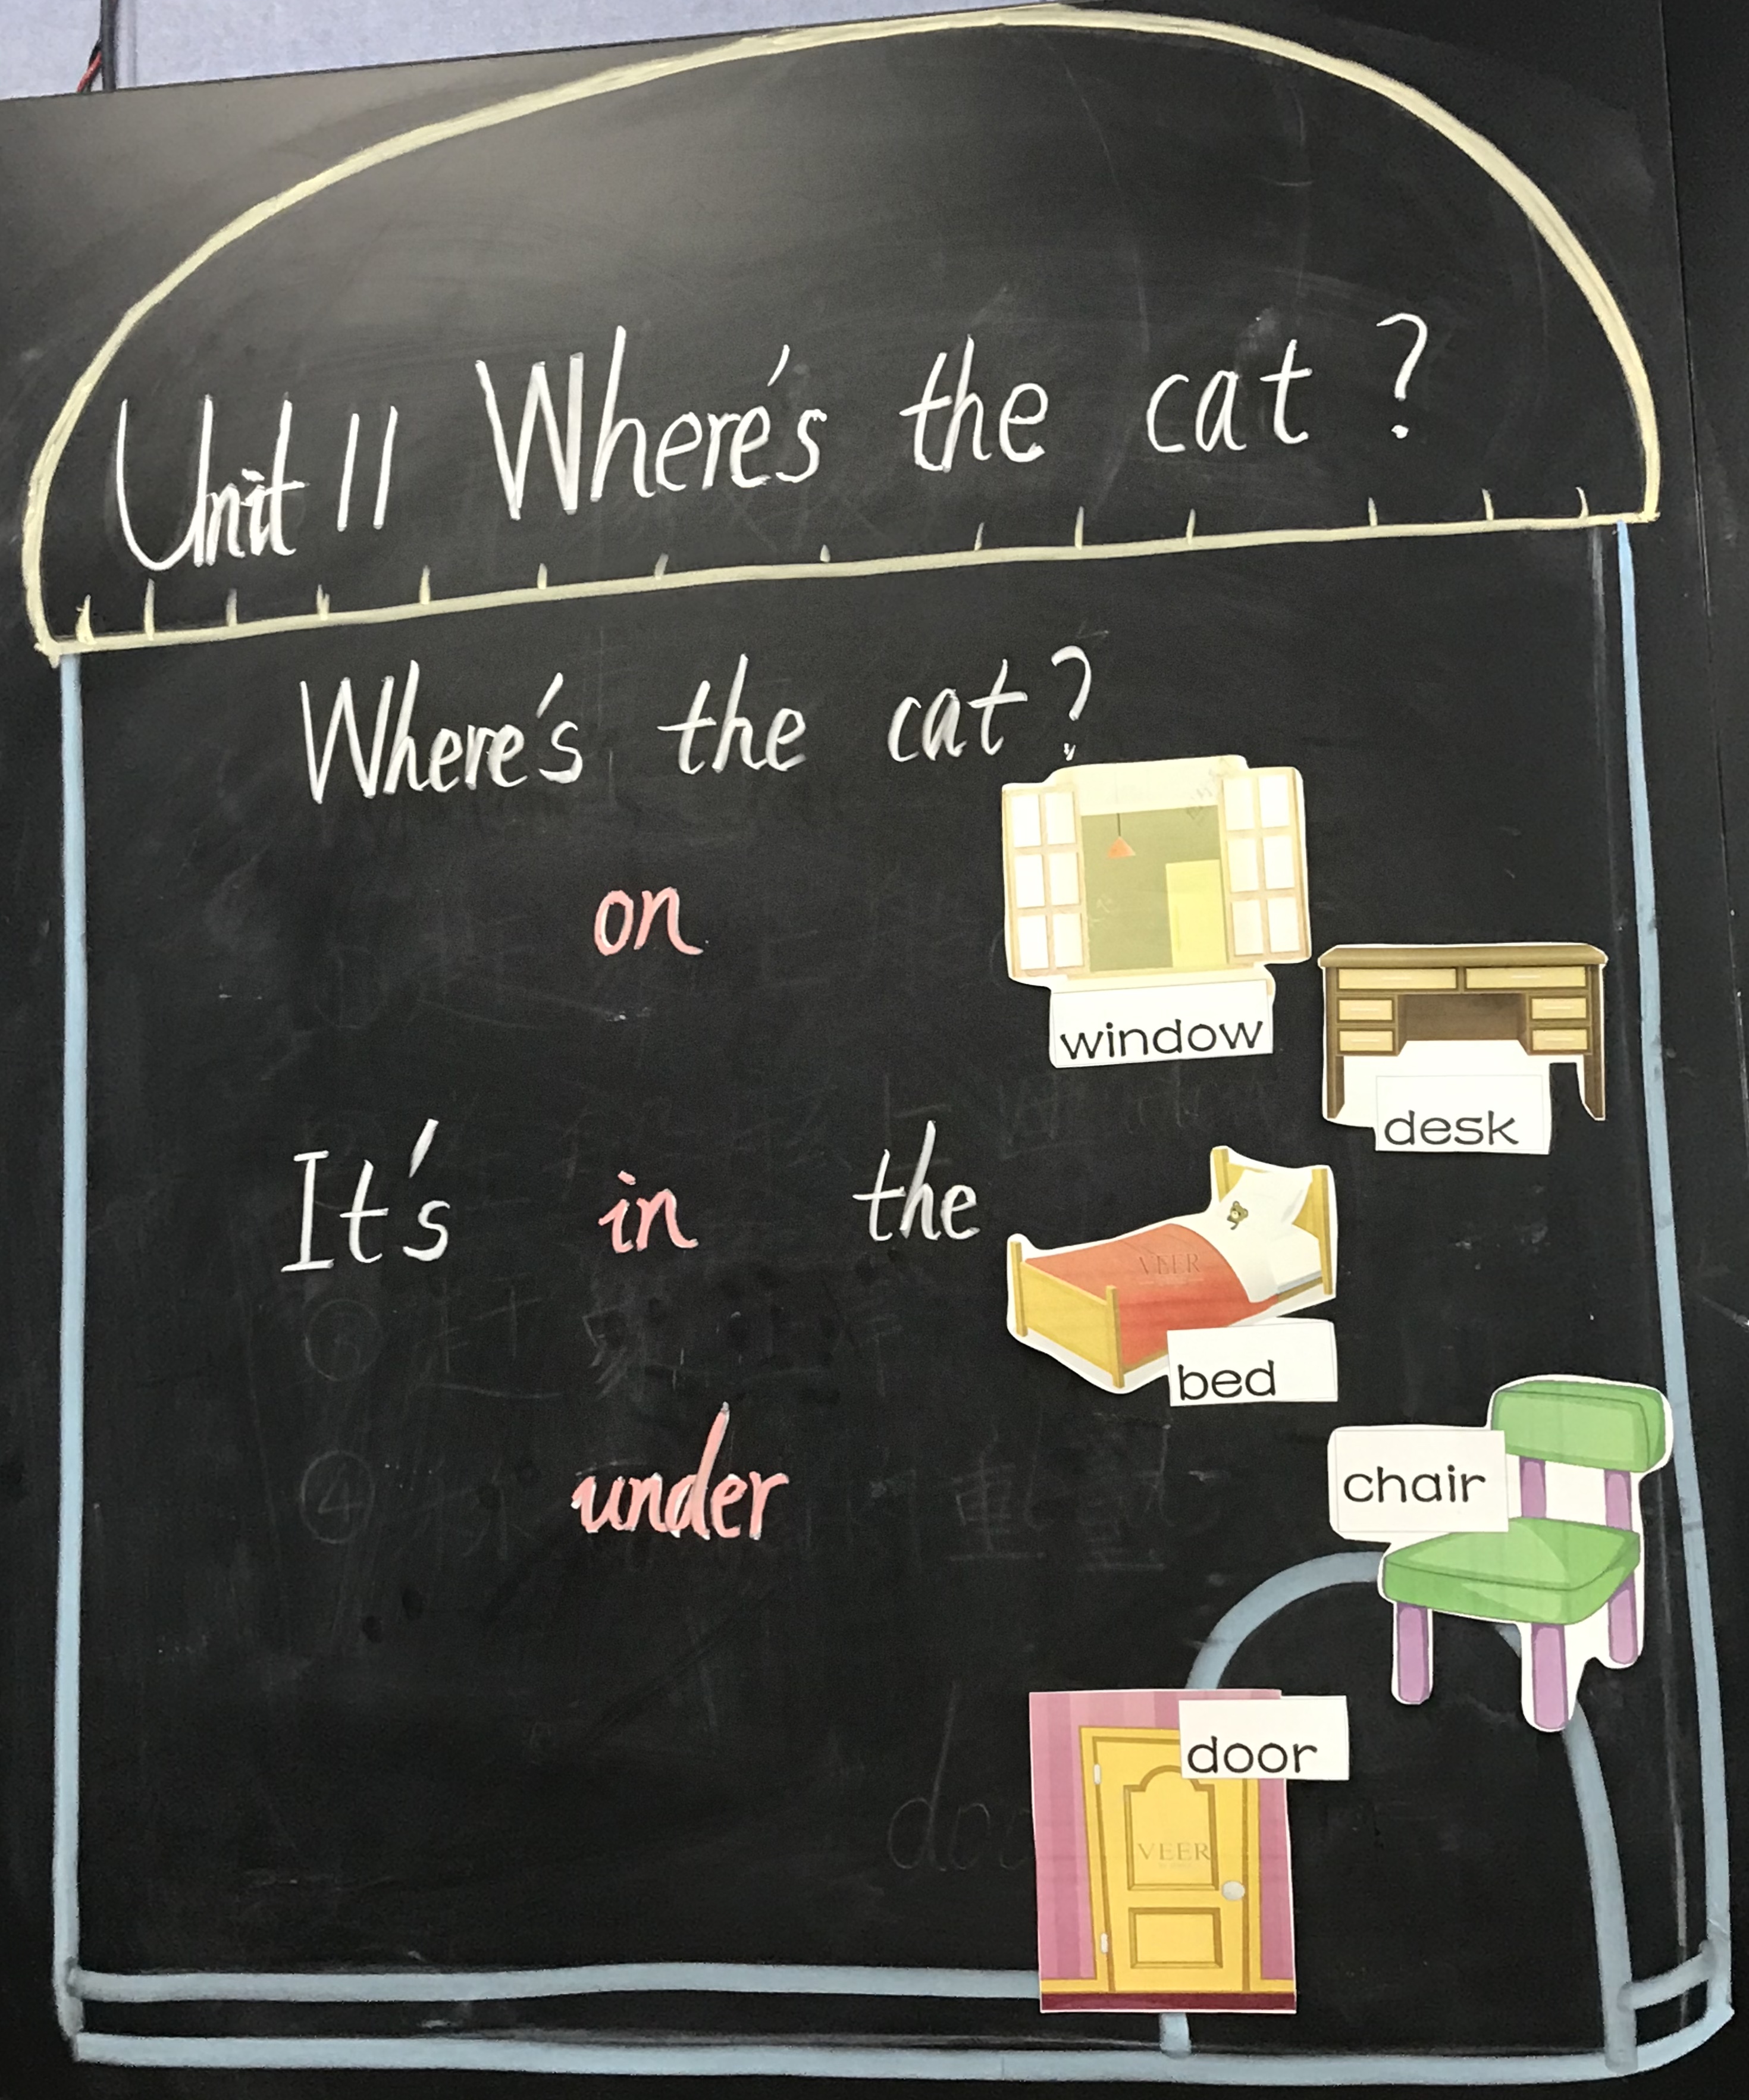 Unit 11 Where's the cat?
Where's the cat?
on
window
desk
It's in the
VEER
bed
under
chair
door
VEER